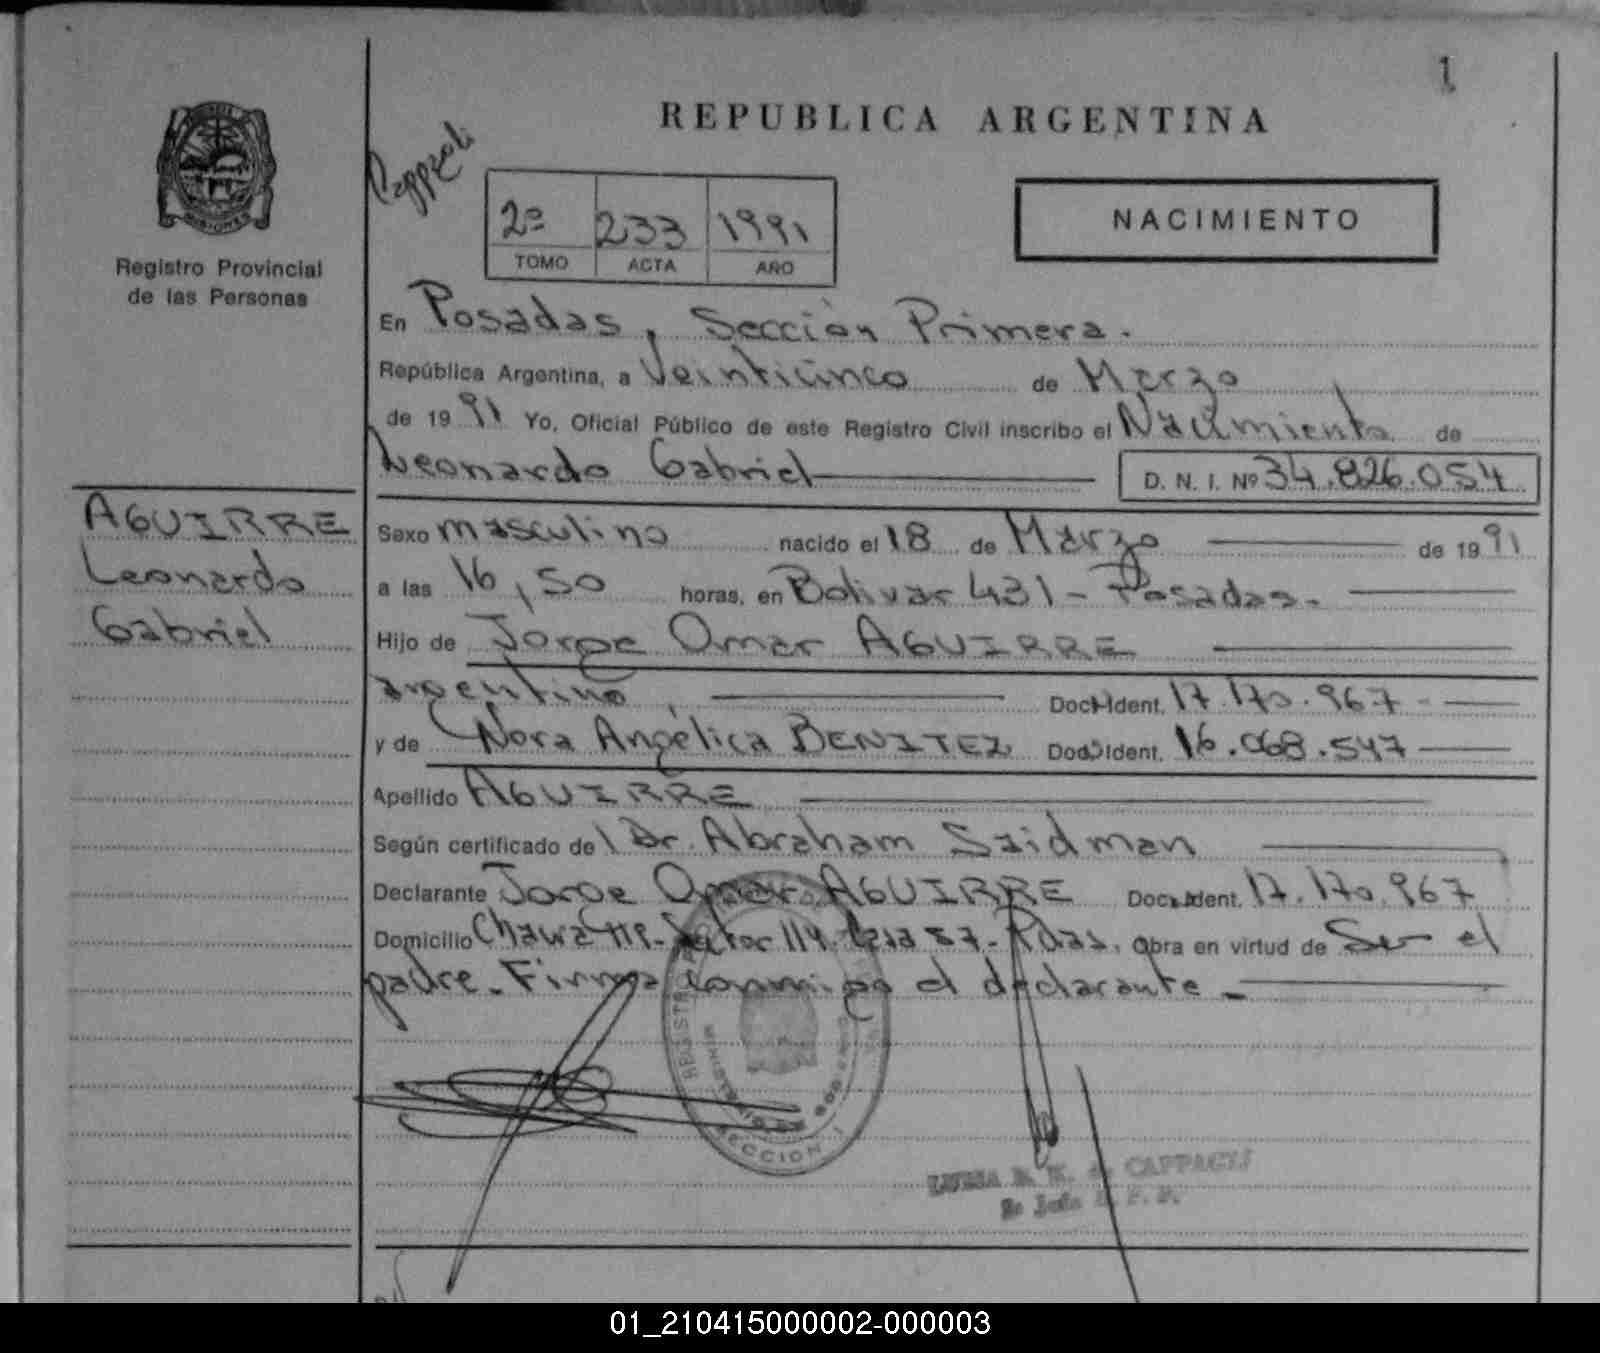 1
REPUBLICA ARGENTINA
MISIONES
Registro Provincial
de las Personas
2º 233 1991
TOMO ACTA AÑO
NACIMIENTO
En Posadas, Sección Primera.
República Argentina, a Veinticinco de Marzo
de 1991 Yo, Oficial Público de este Registro Civil inscribo el Nacimiento de
Leonardo Gabriel D. N. I. Nº 34.826.054
AGUIRRE
Leonardo
Gabriel
Sexo masculino nacido el 18 de Marzo de 1991
a las 16,50 horas, en Bolivar 431 - Posadas.
Hijo de Jorge Omar AGUIRRE
argentino, Doc. Ident. 17.170.967
y de Nora Angélica BENITEZ Doc. Ident. 16.068.547
Apellido AGUIRRE
Según certificado de l Dr. Abraham Saidman
Declarante Jorge Omar AGUIRRE Doc. Ident. 17.170.967
Domicilio 114. Casa 57- Pdas. Obra en virtud de Ser el
padre. Firma conmigo el declarante.
REGISTRO
MINISTERIO DE GOBIERNO
SECCION I
LUISA de CAPPAGLI
01_210415000002-000003